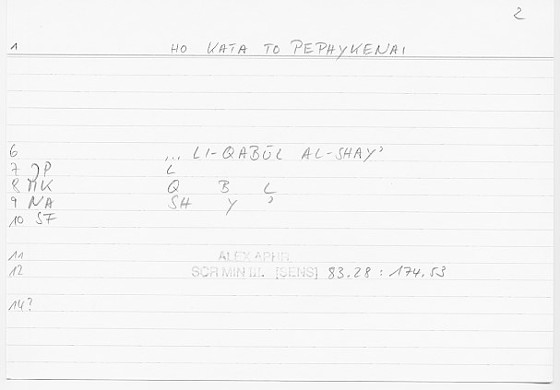 2
1 HO KATA TO PEPHYKENAI
6 ... LI-QABŪL AL-SHAY'
7 L
8 Q B L
9 NA SH Y '
10
11 ALEX APHR.
12 SCR MIN III. [SENS] 83.28 : 174.53
14?